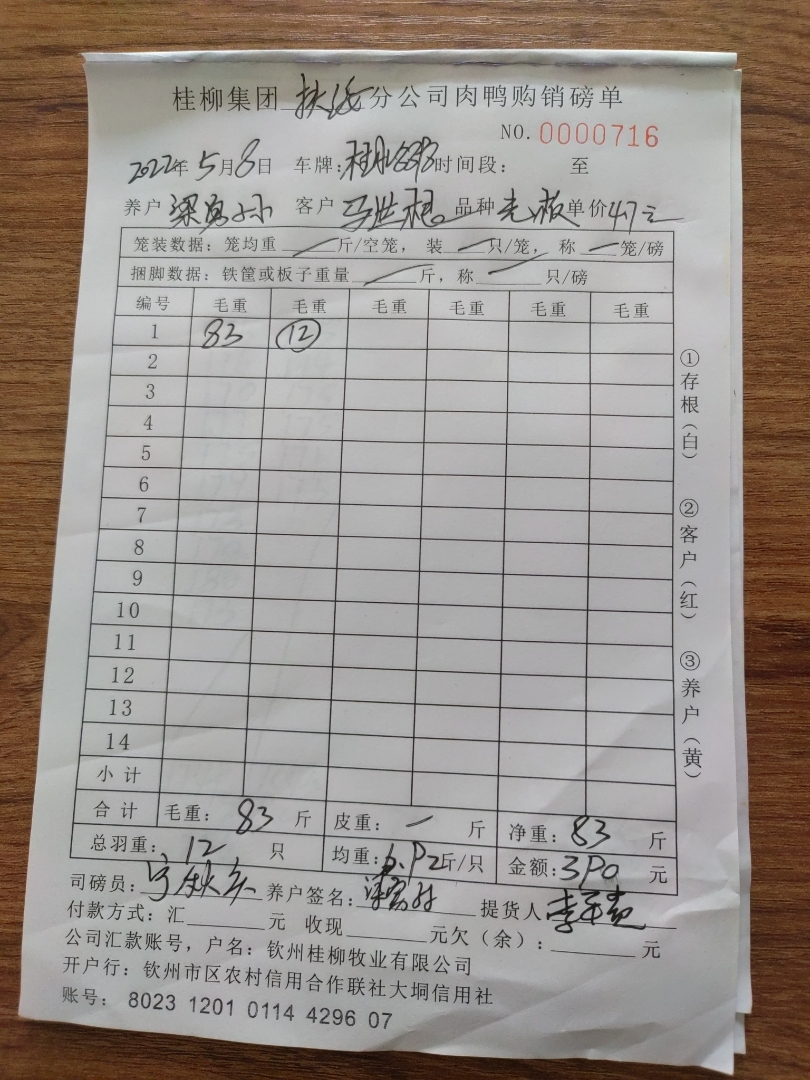 桂柳集团 扶绥 分公司肉鸭购销磅单
NO. 0000716
2022年5月8日 车牌: 时间段: 至
养户 客户 品种 单价 4.7元
笼装数据: 笼均重 / 斤/空笼, 装 / 只/笼, 称 / 笼/磅
捆脚数据: 铁筐或板子重量 / 斤, 称 / 只/磅
编号 毛重 毛重 毛重 毛重 毛重 毛重
1 83 ⑫
2
3
4
5
6
7
8
9
10
11
12
13
14
小计
合计 毛重: 83 斤 皮重: 斤 净重: 83 斤
总羽重: 12 只 均重: 6.92斤/只 金额: 390 元
司磅员: 养户签名: 提货人
付款方式: 汇 元 收现 元欠(余): 元
公司汇款账号, 户名: 钦州桂柳牧业有限公司
开户行: 钦州市区农村信用合作联社大垌信用社
账号: 8023 1201 0114 4296 07
①存根(白)
②客户(红)
③养户(黄)